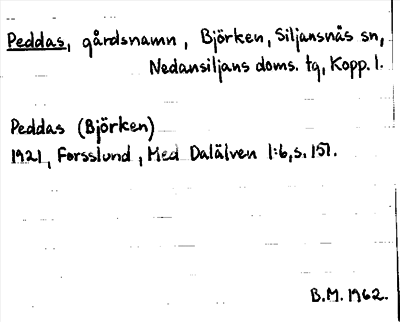 Peddas, gårdsnamn, Björken, Siljansnäs sn,
Nedansiljans doms. tg, Kopp. l.
Peddas (Björken)
1921, Forsslund, Med Dalälven 1:6, s. 157.
B.M. 1962.